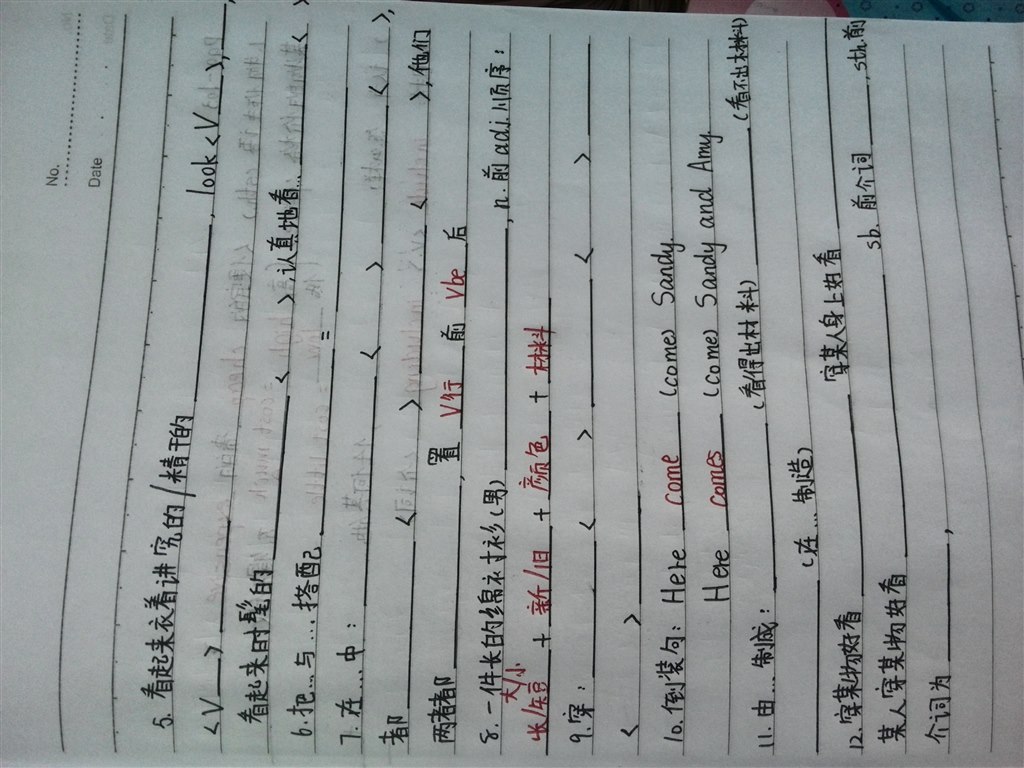 No.
Date
5. 看起来衣着讲究的/精干的______, look <V ed>,
<V______>
看起来时髦的______<______>,认真地看...<
6.把...与...搭配______=______
7.在...中:______<______>______<______>,
都______<______>______<______>,他们
两者都______,置 V行 前 Vbe 后
8.一件长的绵衬衫(男)______, n.前adj.顺序:
大/小
长/短 + 新/旧 + 颜色 + 材料
9.穿:______<______>______<______>______
<______>
10.倒装句: Here come (come) Sandy.
Here comes (come) Sandy and Amy
11.由...制成:______(看得出材料)______(看不出材料)
______(在...制造)
12.穿某物好看______穿某人身上好看______
某人穿某物好看______sb. 前介词______, sth.前
介词为______,